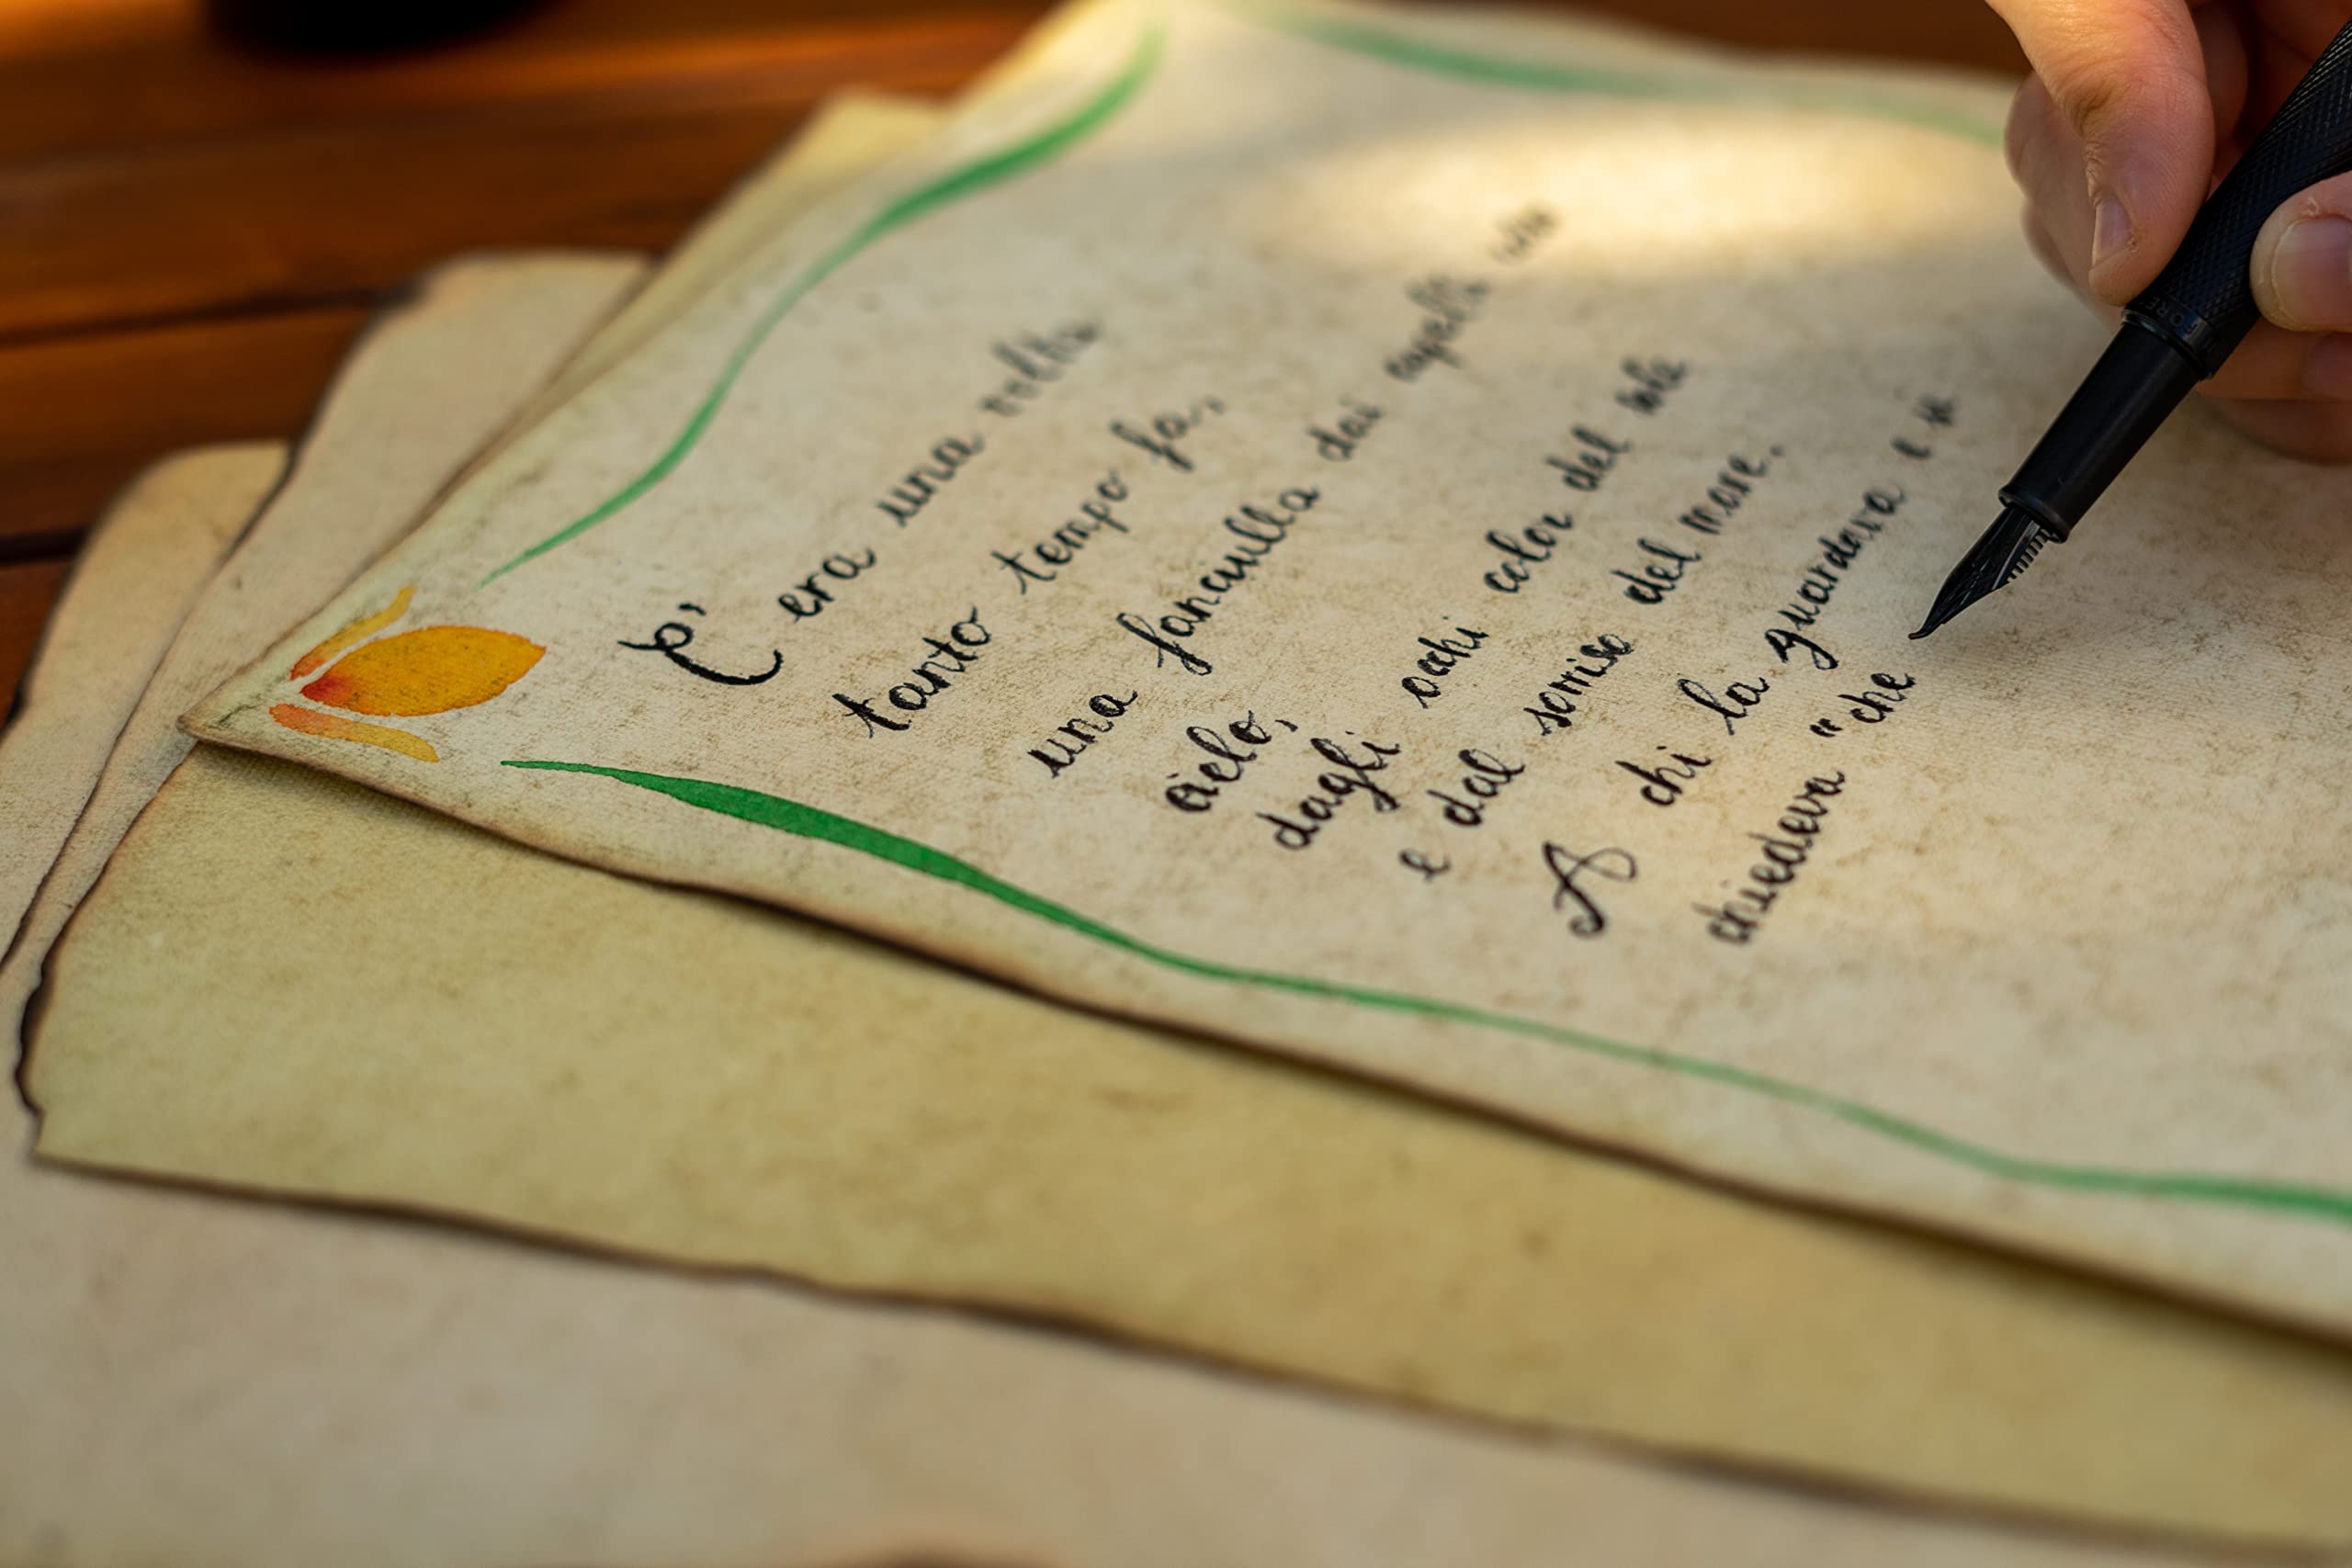 C'era una volta
tanto tempo fa,
una fanciulla dai capelli
cielo,
dagli occhi color del sole
e dal sorriso del mare.
A chi la guardava e
chiedeva "che